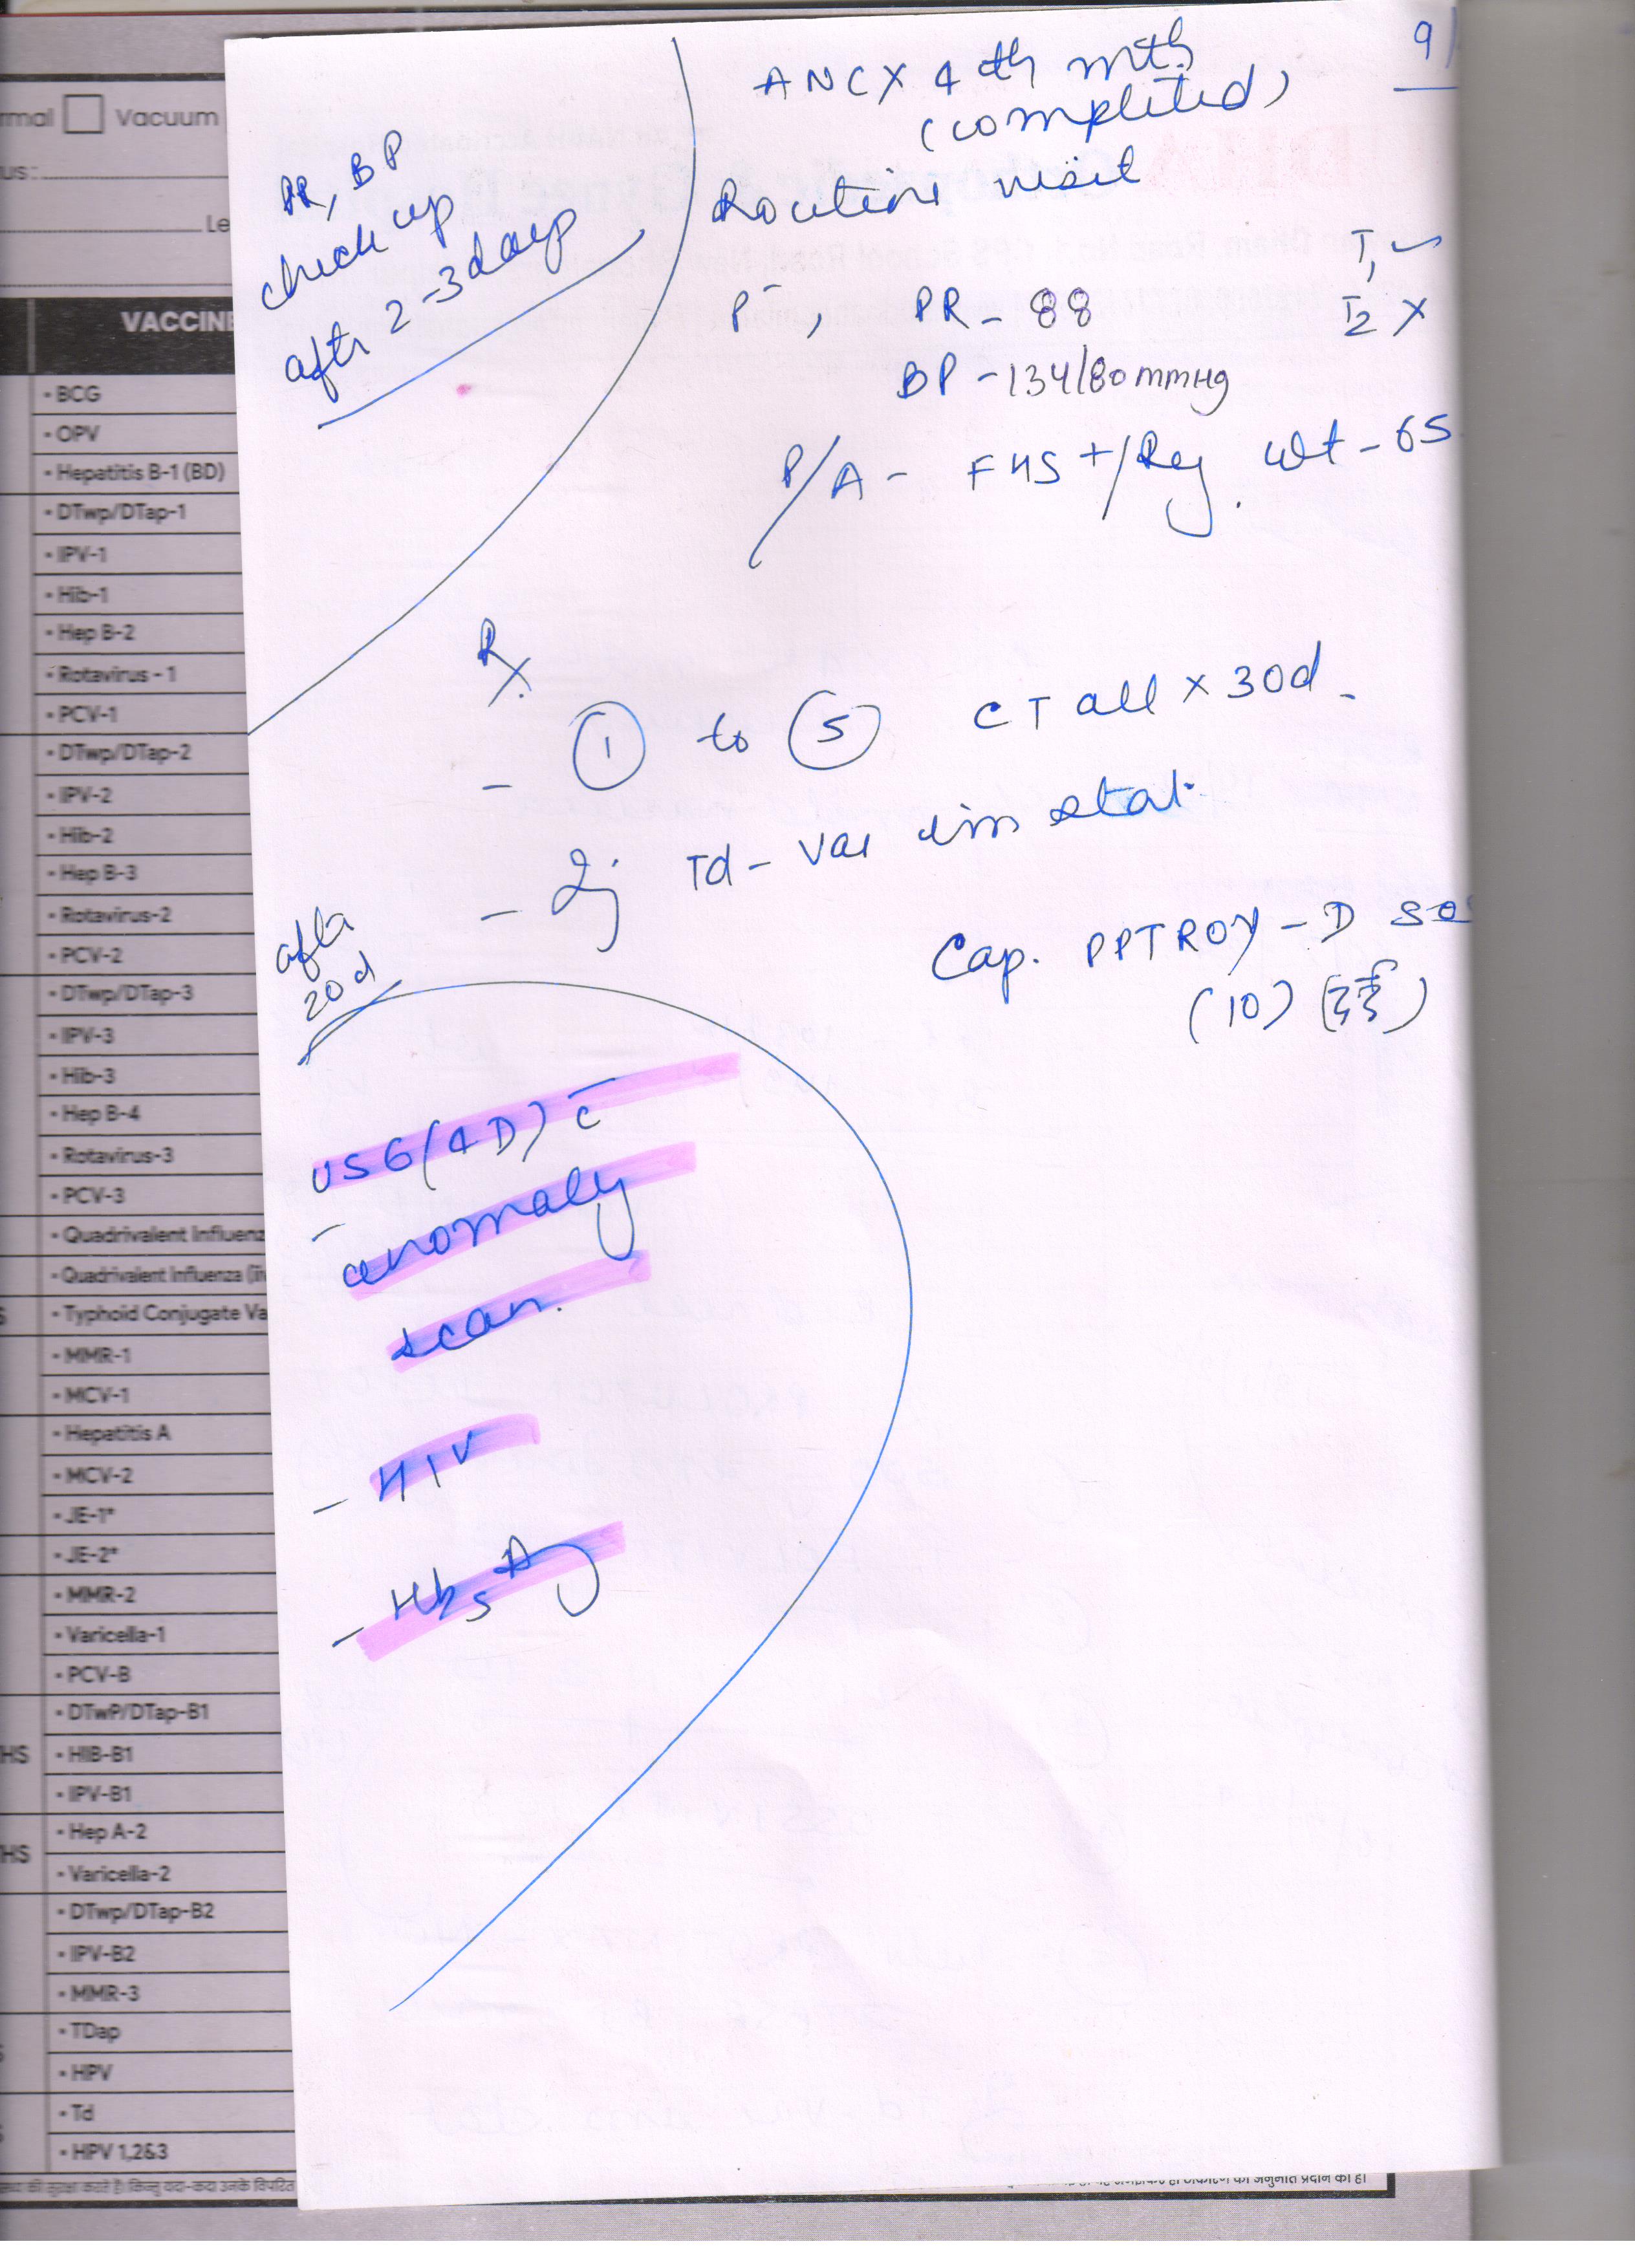 9/
ANC X 4th mth
(completed)
Routine visit
PR, BP
check up
after 2-3 days
T1 ✓
T2 X
P-, PR - 88
BP - 134/80 mmHg
P/A - FHS +/Reg. wt - 65
Rx
- ① to ⑤ CT all x 30d -
- Inj Td-vac im stat.
Cap. PPTROY-D SOS
(10)
after
20d
USG (4D) c̄
- anomaly
scan.
- HIV
- HbsAg
rmal Vacuum
us:
Le
VACCINE
• BCG
• OPV
• Hepatitis B-1 (BD)
• DTwp/DTap-1
• IPV-1
• Hib-1
• Hep B-2
• Rotavirus - 1
• PCV-1
• DTwp/DTap-2
• IPV-2
• Hib-2
• Hep B-3
• Rotavirus-2
• PCV-2
• DTwp/DTap-3
• IPV-3
• Hib-3
• Hep B-4
• Rotavirus-3
• PCV-3
• Quadrivalent Influenz
• Quadrivalent Influenza (iiv
• Typhoid Conjugate Va
• MMR-1
• MCV-1
• Hepatitis A
• MCV-2
• JE-1*
• JE-2*
• MMR-2
• Varicella-1
• PCV-B
• DTwP/DTap-B1
HS • HIB-B1
• IPV-B1
• Hep A-2
HS • Varicella-2
• DTwp/DTap-B2
• IPV-B2
• MMR-3
• TDap
• HPV
• Td
• HPV 1,2&3
की सुरक्षा करते है। किन्तु यदा-कदा उनके विपरित
का अनुमति प्रदान की है।